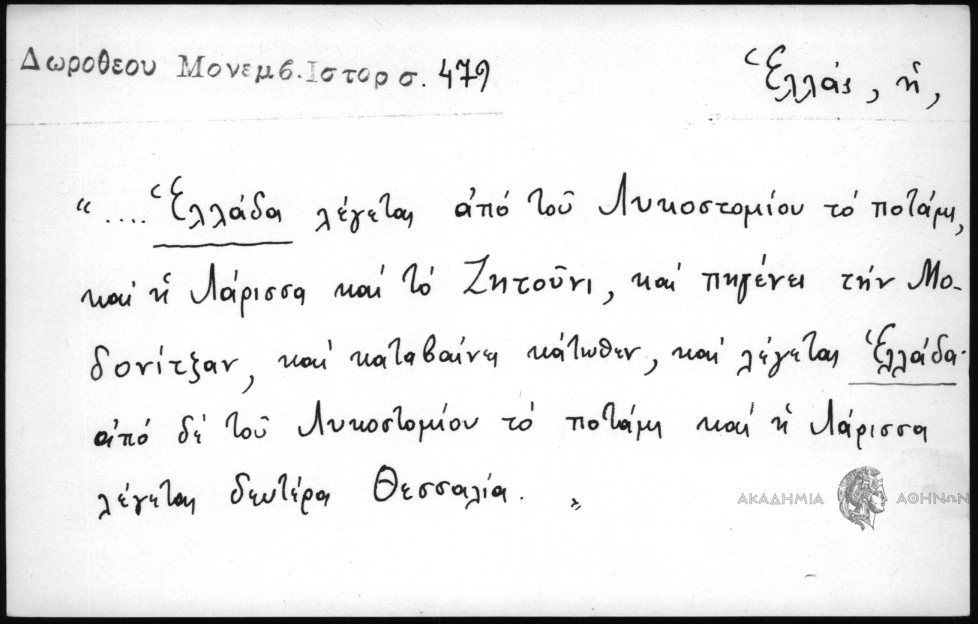 Δωροθεου Μονεμβ. Ιστορ σ. 479
Ἑλλάς, ἡ,
“.... Ἑλλάδα λέγεται ἀπό τοῦ Λυκοστομίου τό ποτάμι,
καί ἡ Λάρισσα καί τό Ζητοῦνι, καί πηγένει τήν Μο-
δονίτζαν, καί καταβαίνει κάτωθεν, καί λέγεται Ἑλλάδα·
ἀπό δέ τοῦ Λυκοστομίου τό ποτάμι καί ἡ Λάρισσα
λέγεται δευτέρα Θεσσαλία. ”
ΑΚΑΔΗΜΙΑ ΑΘΗΝΩΝ